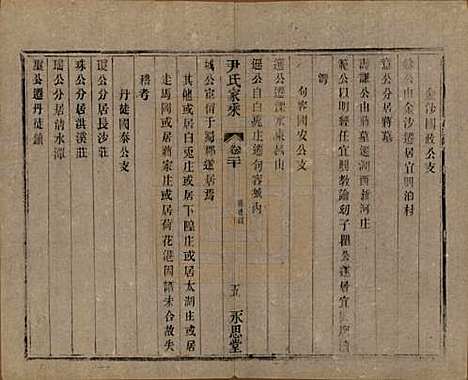 金沙國政公支
公由金沙遷居宜興泊村
公分居蔣墓
謙公由蔣墓遷湖西新河庄
公以明經任宜興教諭幼子閏公遂居宜興
句容國安公支
遷公遷溧水東呂山
遜公自白兎庄遷句容城內
尹氏家乘
卷二十
五
永思堂
城公宦情于蜀郡遂居焉
其他或居白兎庄或居下隍庄或居太湖庄或居
走馬岡或居蔣家庄或居荷花港因譜未合故失
稽考
丹徒國泰公支
公分居長沙莊
珠公分居洪溪莊
瑞公分居清水潭
公遷丹徒鎮